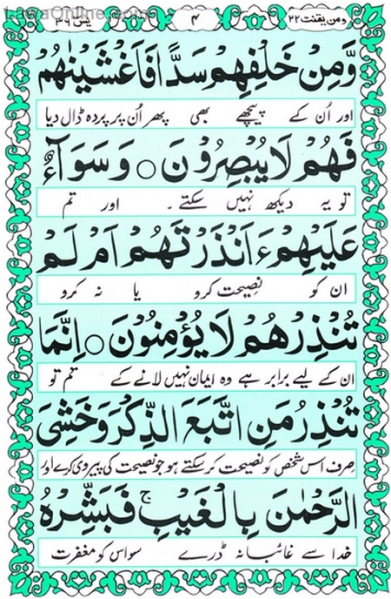 ومن یقنت ۲۲ ۴ یٰسٓ ۳۶
وَّمِنْ خَلْفِهِمْ سَدًّا فَاَغْشَيْنٰهُمْ
اور اُن کے پیچھے بھی پھر اُن پر پردہ ڈال دیا
فَهُمْ لَا يُبْصِرُوْنَ ○ وَسَوَآءٌ
تو یہ دیکھ نہیں سکتے ۔ اور تم
عَلَيْهِمْ ءَاَنْذَرْتَهُمْ اَمْ لَمْ
ان کو نصیحت کرو یا نہ کرو
تُنْذِرْهُمْ لَا يُؤْمِنُوْنَ ○ اِنَّمَا
ان کے لیے برابر ہے وہ ایمان نہیں لانے کے تم تو
تُنْذِرُ مَنِ اتَّبَعَ الذِّكْرَ وَخَشِيَ
صرف اس شخص کو نصیحت کر سکتے ہو جو نصیحت کی پیروی کرے اور
الرَّحْمٰنَ بِالْغَيْبِ ۚ فَبَشِّرْهُ
خدا سے غائبانہ ڈرے سو اس کو مغفرت